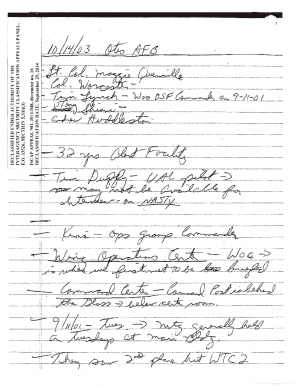 DECLASSIFIED UNDER AUTHORITY OF THE
INTERAGENCY SECURITY CLASSIFICATION APPEALS PANEL,
E.O. 13526, SECTION 5.3(b)(3)
ISCAP APPEAL NO. 2011-048, document no. 16
DECLASSIFICATION DATE: September 25, 2014
10/14/03 Otis AFB
Lt. Col. Maggie
Col. Worcester
Tim Lynch - Was OSF Commander on 9-11-01
Huddleston
- 32 yrs Alert Facility
- Tim Duffy - UAL pilot →
may not be available for
interview - on
- King - Ops group Commander
- Wing Operations Center - WOC -
is noted as first net to be briefed
- Command Center - Command Post is behind
the Glass → below
- 9/11/01 - Tues. → mtg generally held
on Tuesdays at main Bldg
- They saw 2nd plane hit WTC2